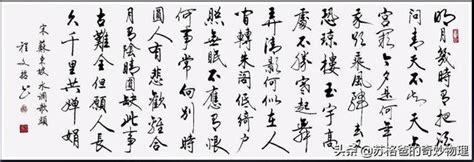 明月幾時有把酒
问青天不知天上
宫阙今夕是何年我
欲乘風歸去又
恐瓊樓玉宇高處
不勝寒起舞
弄清影何似在人
間轉朱阁低綺户
照無眠不應有恨
何事常向别時
圓人有悲歡離合
月有陰晴圓缺此事
古難全但願人長
久千里共嬋娟
宋蘇東坡水調歌頭
头条 @苏格爸的奇妙物理